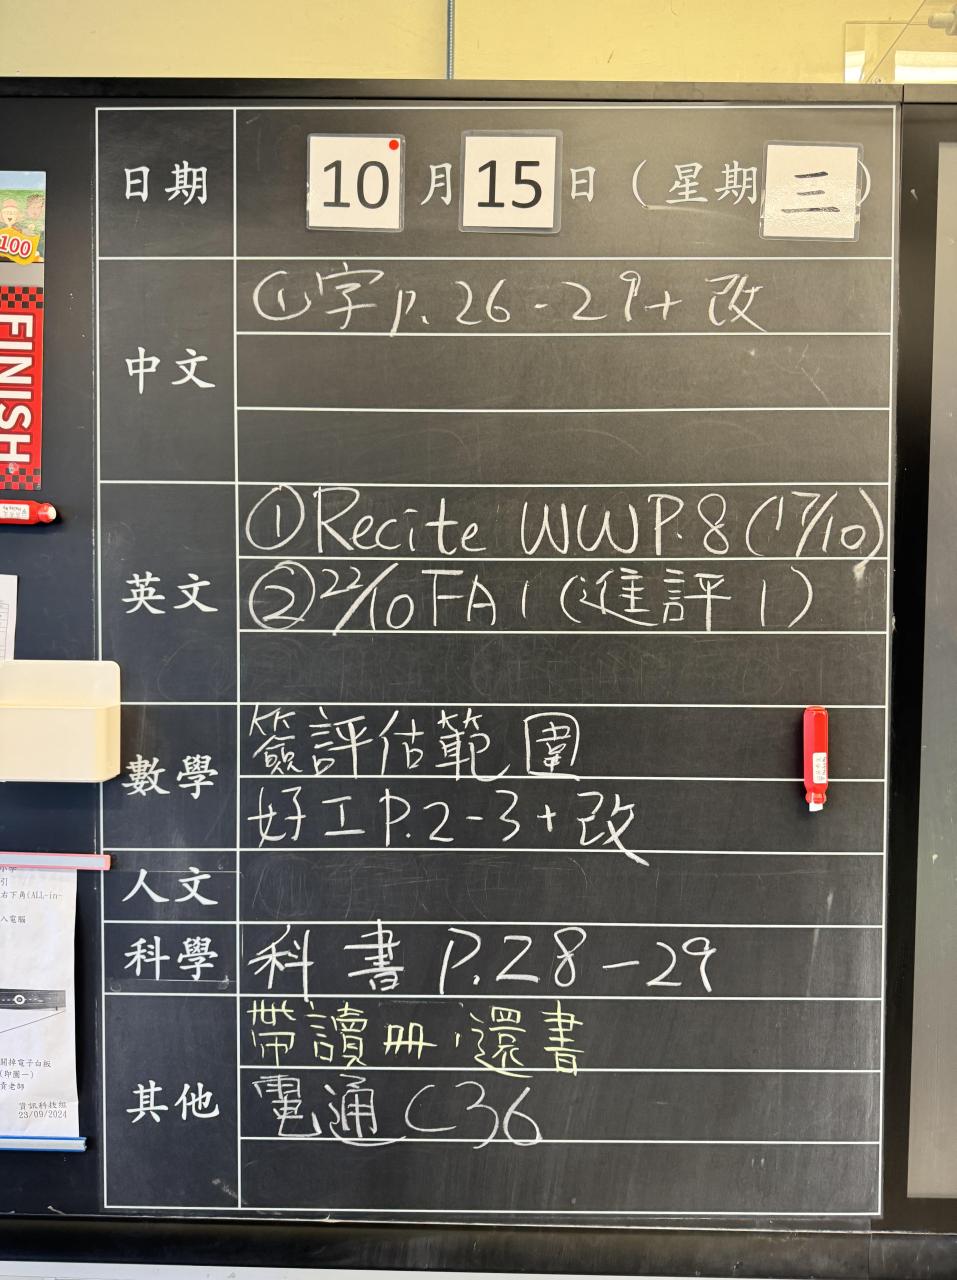 日期 10 月 15 日 (星期 三)
中文
①字P.26-29+改
英文
①Recite WW P.8 (17/10)
②22/10 FA1 (進評1)
數學
簽評估範圍
好工P.2-3+改
人文
科學
科書 P.28-29
其他
帶讀冊,還書
電通C36
100
FINISH
引
右下角(ALL-in-
入電腦
關掉電子白板
(印圖一)
責老師
資訊科技組
23/09/2024